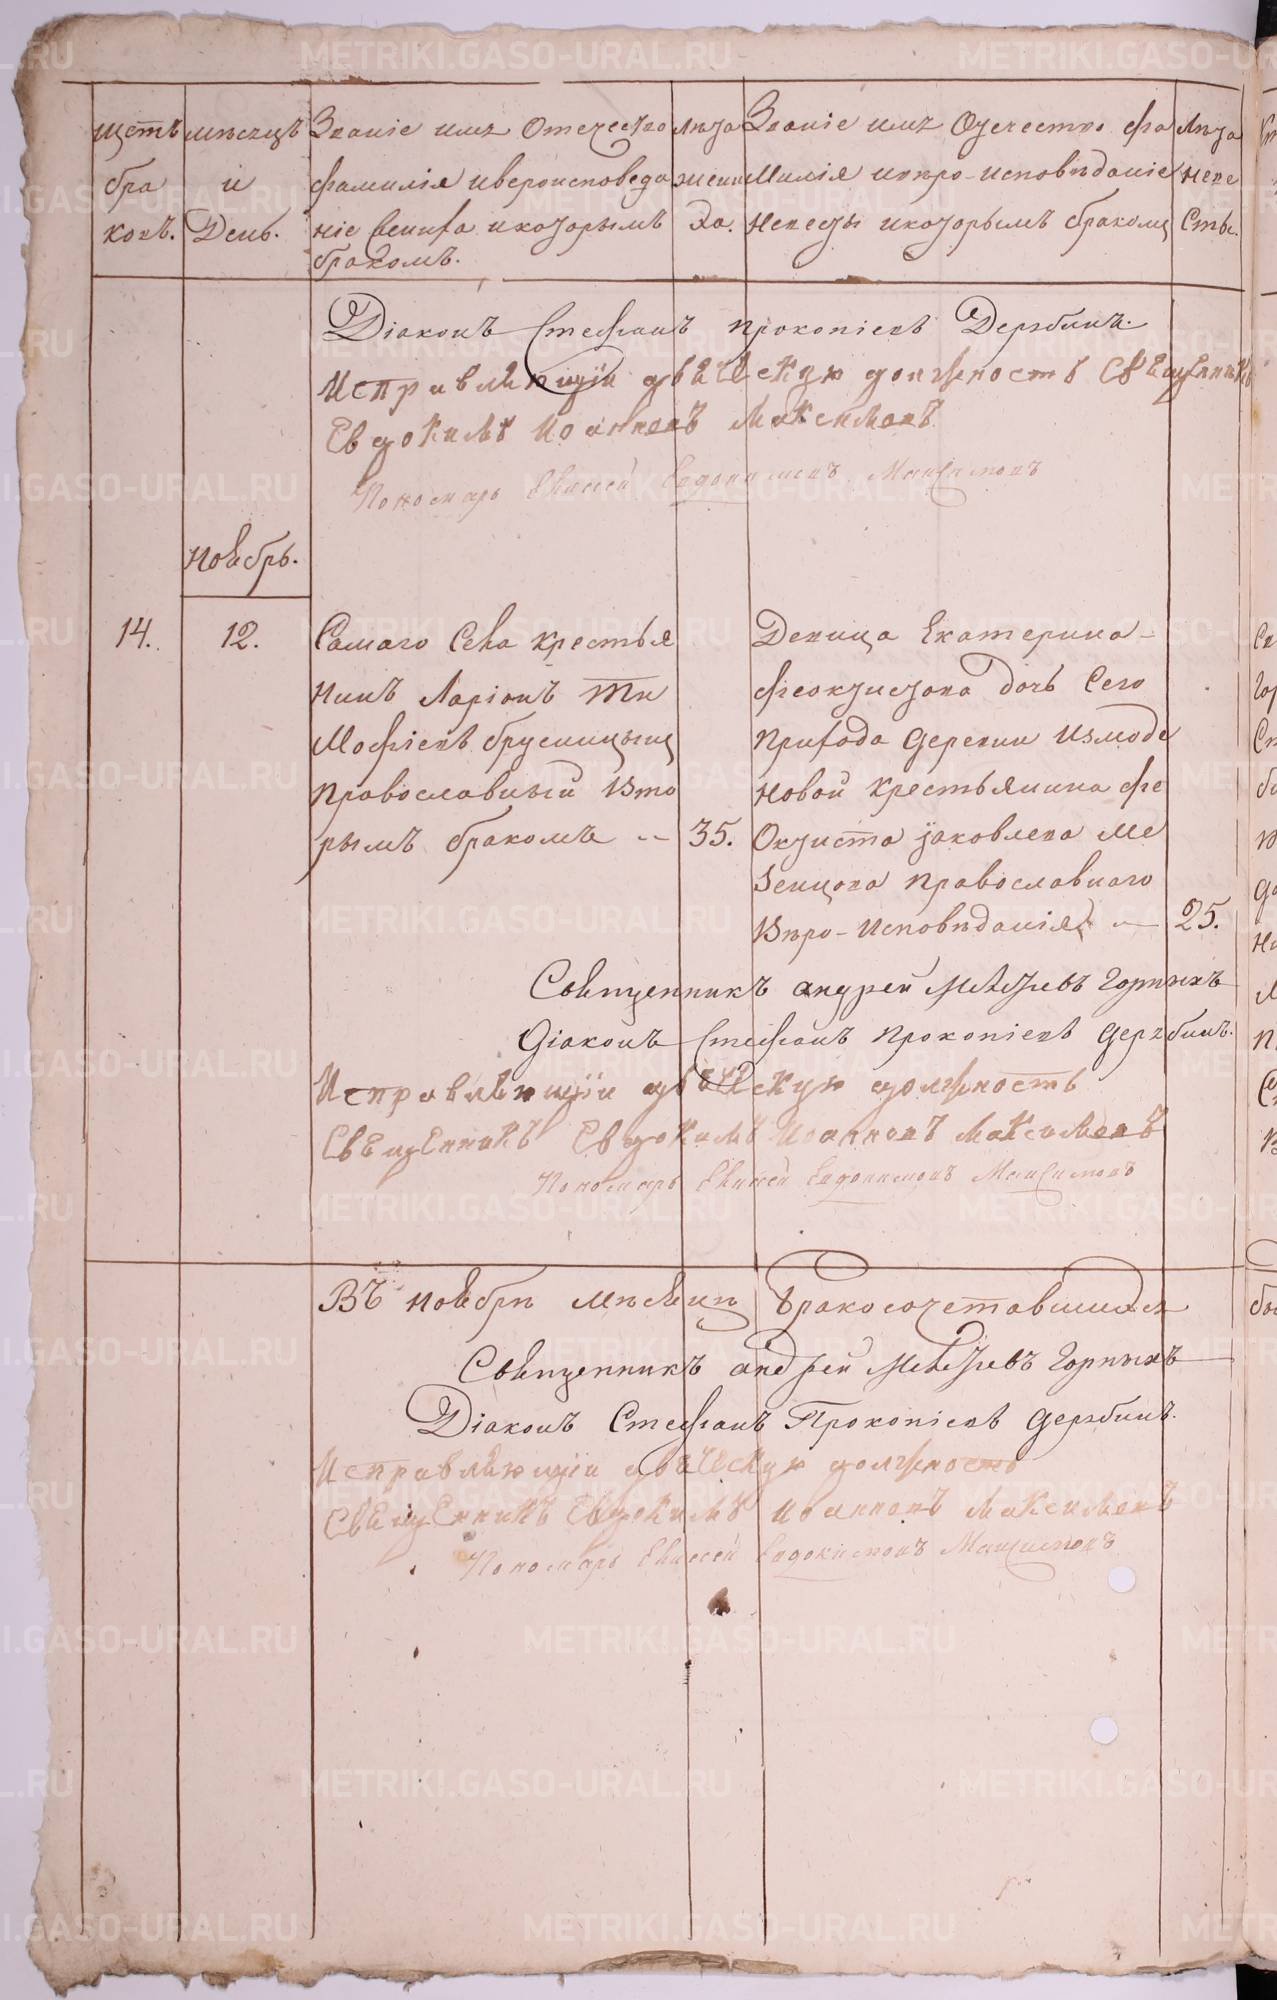 щетъ бра ковъ.
мѣсецъ и День.
Званіе имя Отечество
фамилія ивероисповеда
ніе Жениха икоторымъ
бракомъ.
лѣта жени ха.
Званіе имя Отечество фа
Милія ивѣро-исповѣданіе
невесты икоторымъ бракомъ
Лѣта неве сты.
Діаконъ Стефанъ Прокопіевъ Дерябинъ.
Исправляющій дьяческую должность Священникъ
Евдокимъ Иоанновъ Максимовъ
Пономарь Елисей Евдокимовъ Максимовъ
Ноябрь.
14.
12.
Самаго Села крестья
нинъ Ларіонъ Ти
Мофіевъ брусницынъ
Православный Вто
рымъ бракомъ -
35.
Девица Екатерина
фіоктистова дочь Сего
Прихода деревни Измоде
новой крестьянина фе
Октиста яковлева Ме
зенцова Православнаго
Вѣро-Исповѣданія -
25.
Священникъ андрей Горныхъ
діаконъ Стефанъ Прокопіевъ дерябинъ.
Исправляющій дьяческую должность
Священникъ Евдокимъ Иоанновъ Максимовъ
Пономарь Елисей Евдокимовъ Максимовъ
Въ ноябрѣ мѣсяцѣ бракосочетавшихся
Священникъ андрей Горныхъ
Діаконъ Стефанъ Прокопіевъ дерябинъ.
Исправляющій дьяческую должность
Священникъ Евдокимъ Иоанновъ Максимовъ
Пономарь Елисей Евдокимовъ Максимовъ
METRIKI.GASO-URAL.RU